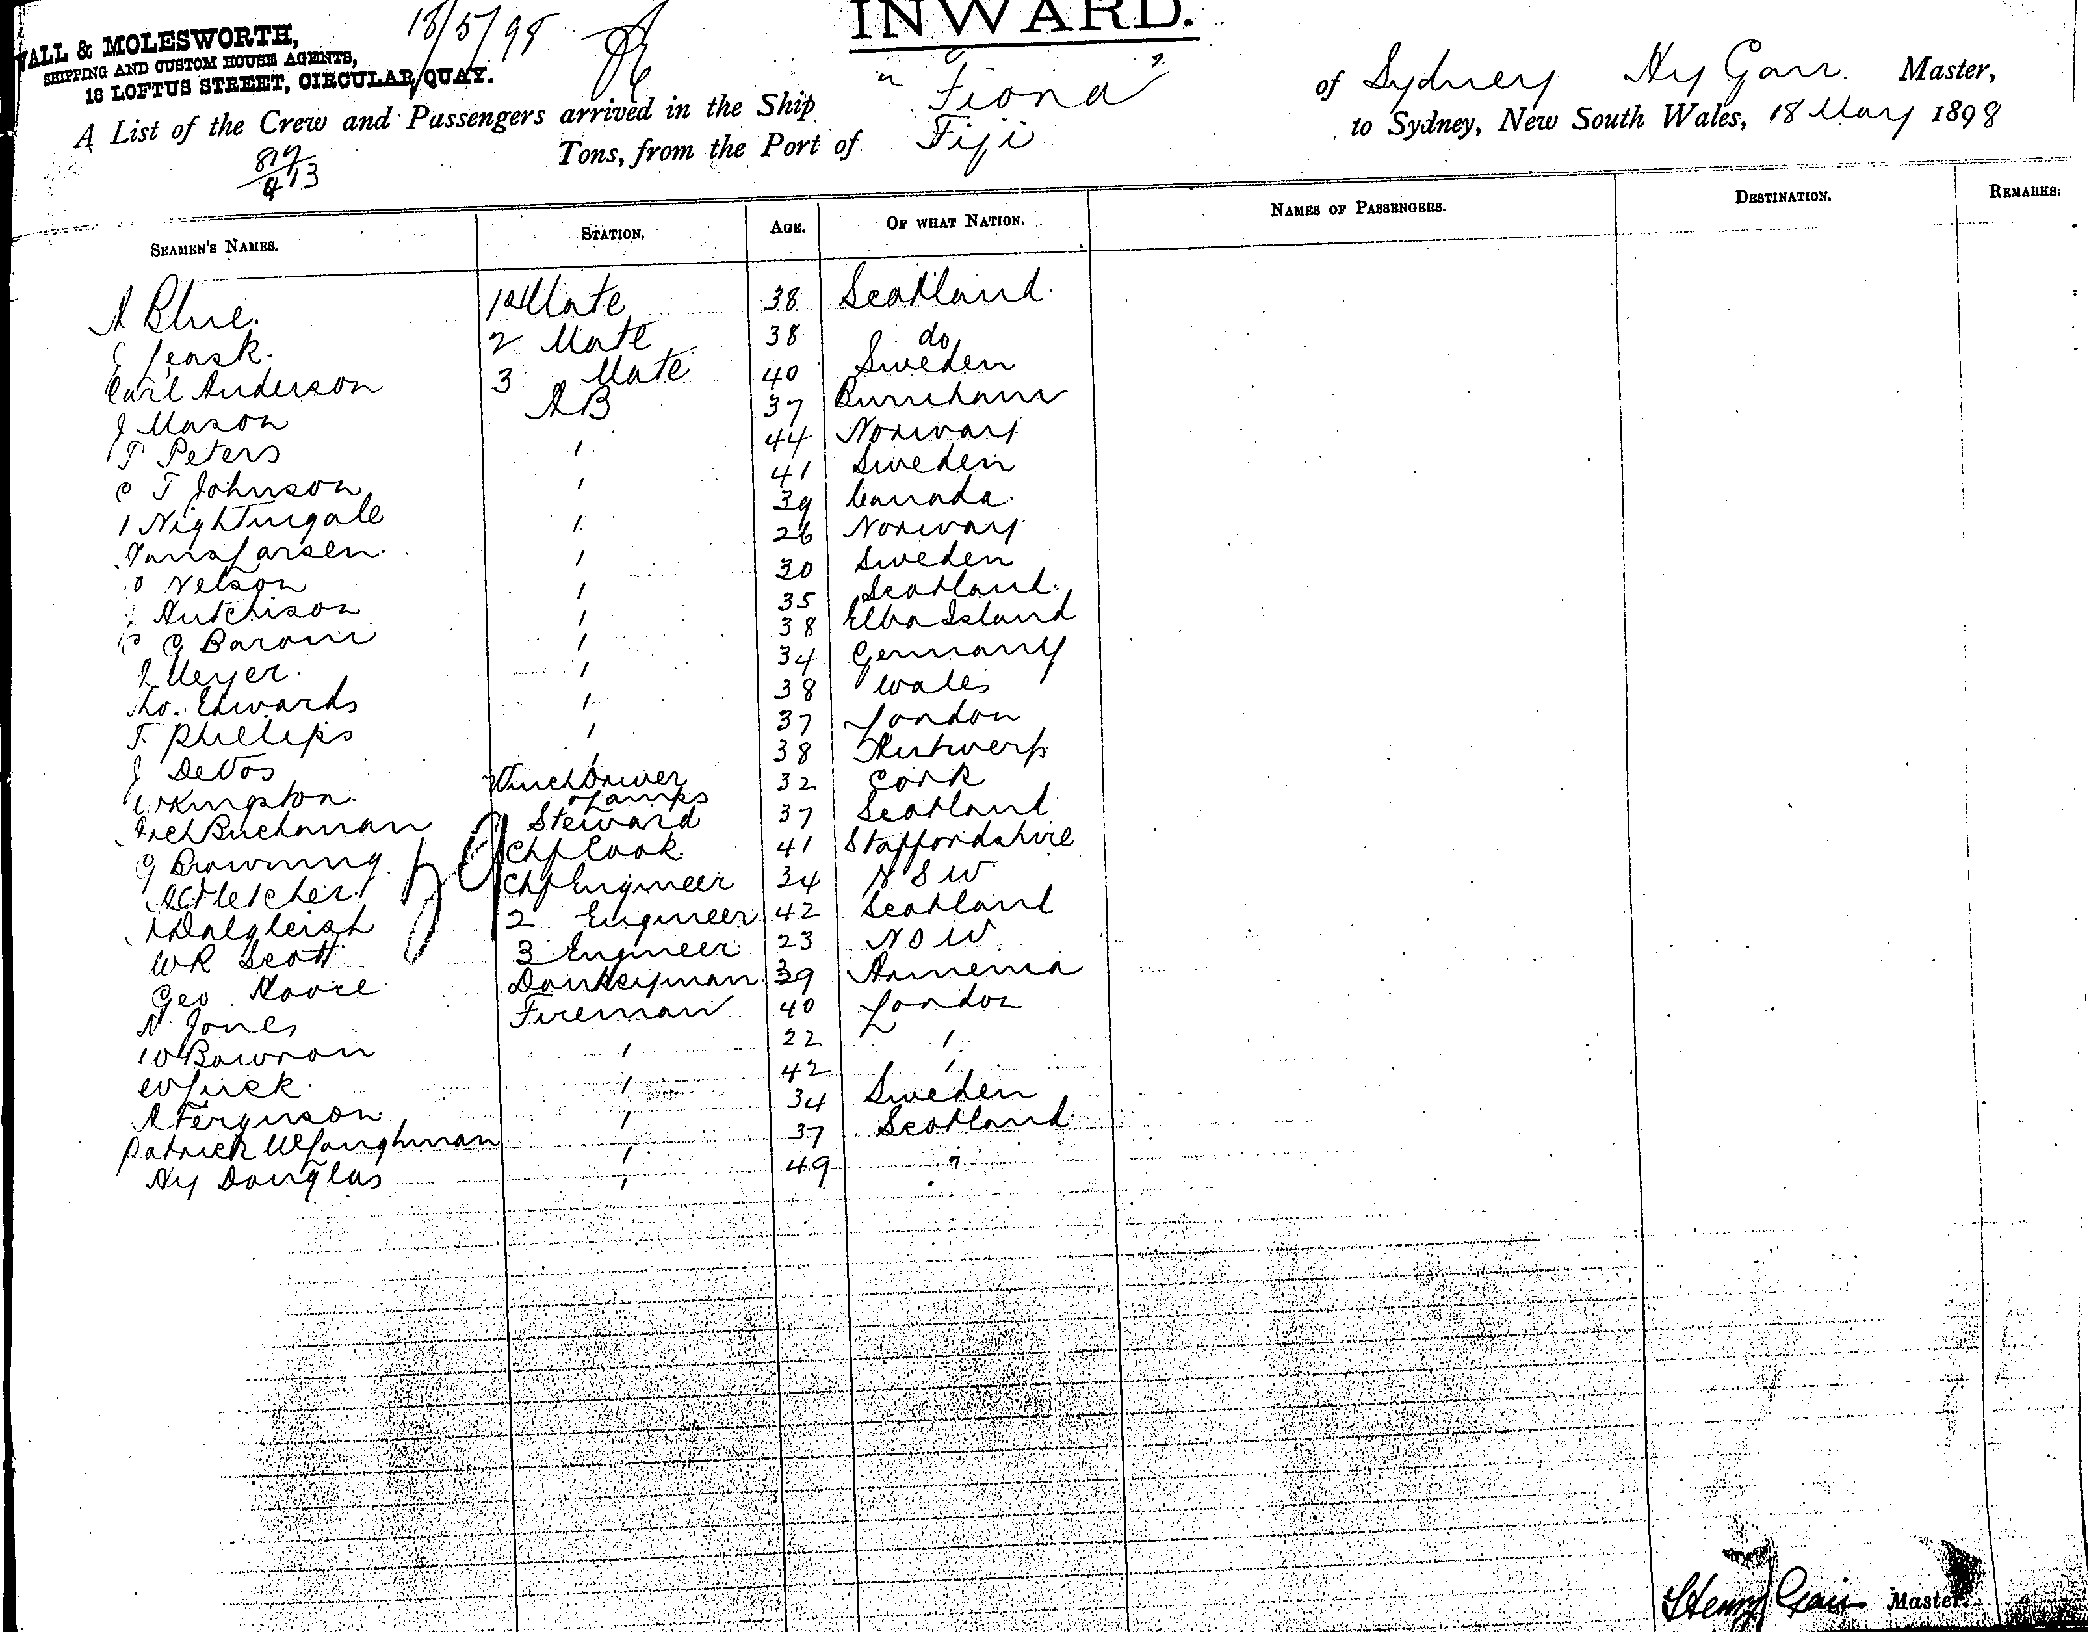 INWARD.
WALL & MOLESWORTH,
SHIPPING AND CUSTOM HOUSE AGENTS,
18 LOFTUS STREET, CIRCULAR QUAY.
18/5/98
A List of the Crew and Passengers arrived in the Ship "Fiona" of Sydney Hy Garr. Master,
Tons, from the Port of Fiji to Sydney, New South Wales, 18 May 1898
SEAMEN'S NAMES. STATION. AGE. OF WHAT NATION. NAMES OF PASSENGERS. DESTINATION. REMARKS:
A Blue. 1st Mate 38 Scotland.
Leask. 2 Mate 38 do
Carl Anderson 3 Mate 40 Sweden
J Mason A B 37
T Peters " 44 Norway
C T Johnson " 41 Sweden
Nightingale " 39 Canada.
Hans Larsen. " 26 Norway
Nelson " 30 Sweden
Hutchison " 35 Scotland.
G Baroni " 38 Elba Island
Meyer. " 34 Germany
Tho. Edwards " 38 Wales
T. Phillips " 37 London
J DeVos " 38 Antwerp
W Kingston. Winchdriver & Lamps 32 Cork
Arch Buchanan Steward 37 Scotland
G Browning. Chf Cook 41 Staffordshire
Fletcher. Chf Engineer 34 N S W
Dalgleish 2 Engineer 42 Scotland
WR Scott 3 Engineer 23 N S W
Geo. Moore Donkeyman 39 Armenia
N Jones Fireman 40 London
W Bowron " 22 "
W Lusk. " 42 "
A Ferguson " 34 Sweden
Patrick McLaughman " 37 Scotland
Hy Douglas " 49 "
Henry Master.